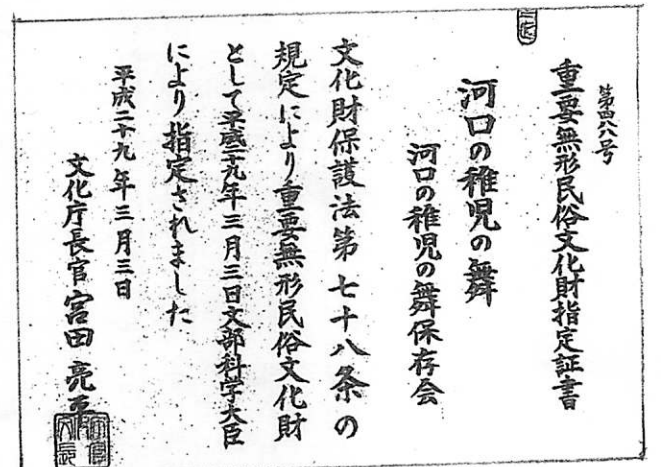 第四八八号
重要無形民俗文化財指定証書
河口の稚児の舞
河口の稚児の舞保存会
文化財保護法第七十八条の
規定により重要無形民俗文化財
として平成二十九年三月三日文部科学大臣
により指定されました
平成二十九年三月三日
文化庁長官 宮田亮平